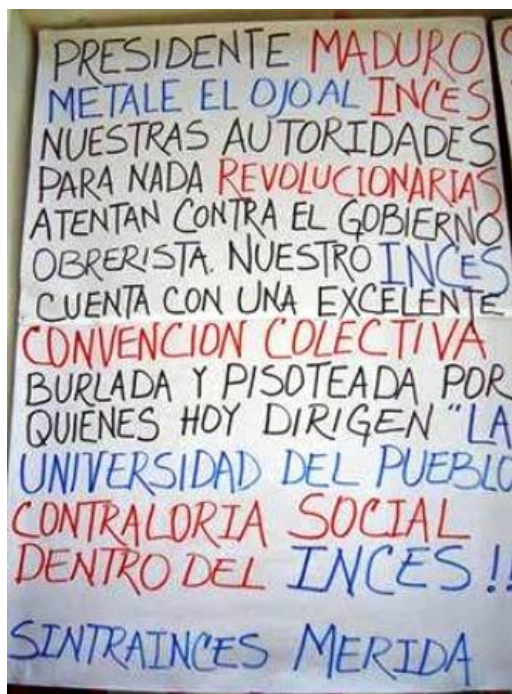 PRESIDENTE MADURO
METALE EL OJO AL INCES
NUESTRAS AUTORIDADES
PARA NADA REVOLUCIONARIAS
ATENTAN CONTRA EL GOBIERNO
OBRERISTA. NUESTRO INCES
CUENTA CON UNA EXCELENTE
CONVENCION COLECTIVA
BURLADA Y PISOTEADA POR
QUIENES HOY DIRIGEN "LA
UNIVERSIDAD DEL PUEBLO
CONTRALORIA SOCIAL
DENTRO DEL INCES !!
SINTRAINCES MERIDA